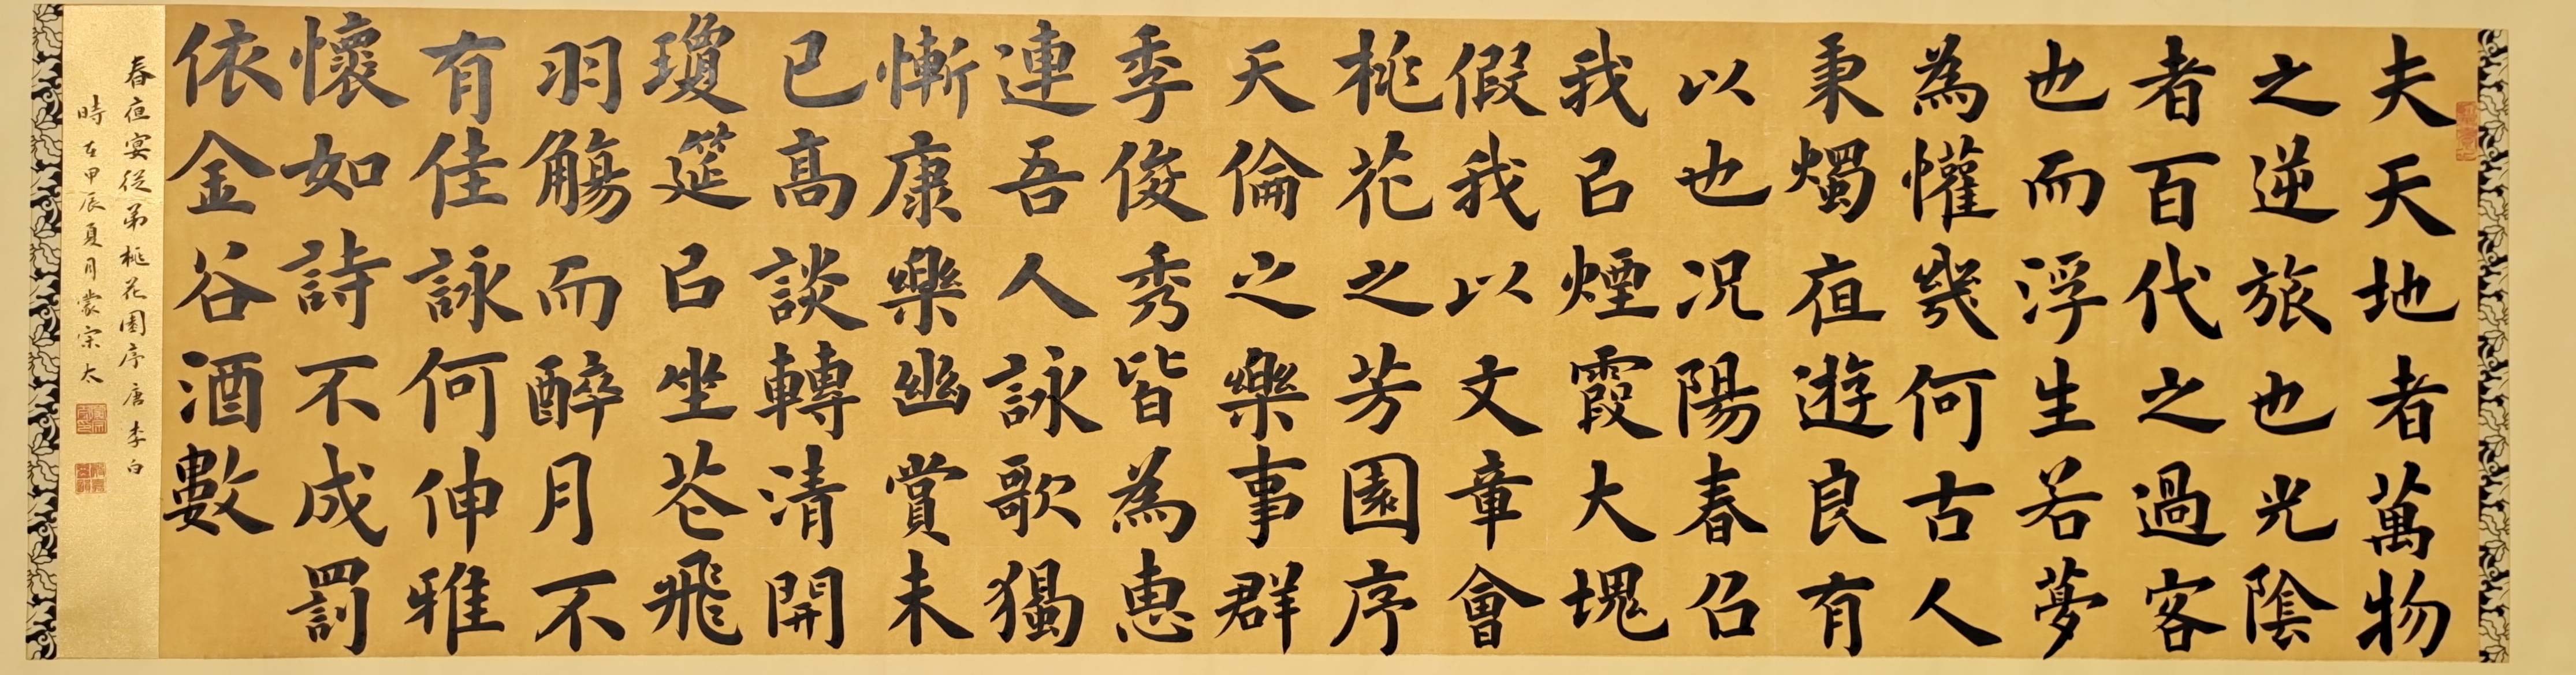 夫天地者萬物
之逆旅也光陰
者百代之過客
也而浮生若夢
為懽幾何古人
秉燭夜遊良有
以也况陽春召
我㠯煙霞大塊
假我以文章會
桃花之芳園序
天倫之樂事群
季俊秀皆為惠
連吾人詠歌獨
慚康樂幽賞未
已高談轉清開
瓊筵㠯坐花飛
羽觴而醉月不
有佳詠何伸雅
懷如詩不成罰
依金谷酒數
春夜宴從弟桃花園序 唐 李白
時在甲辰夏月蒙宗太